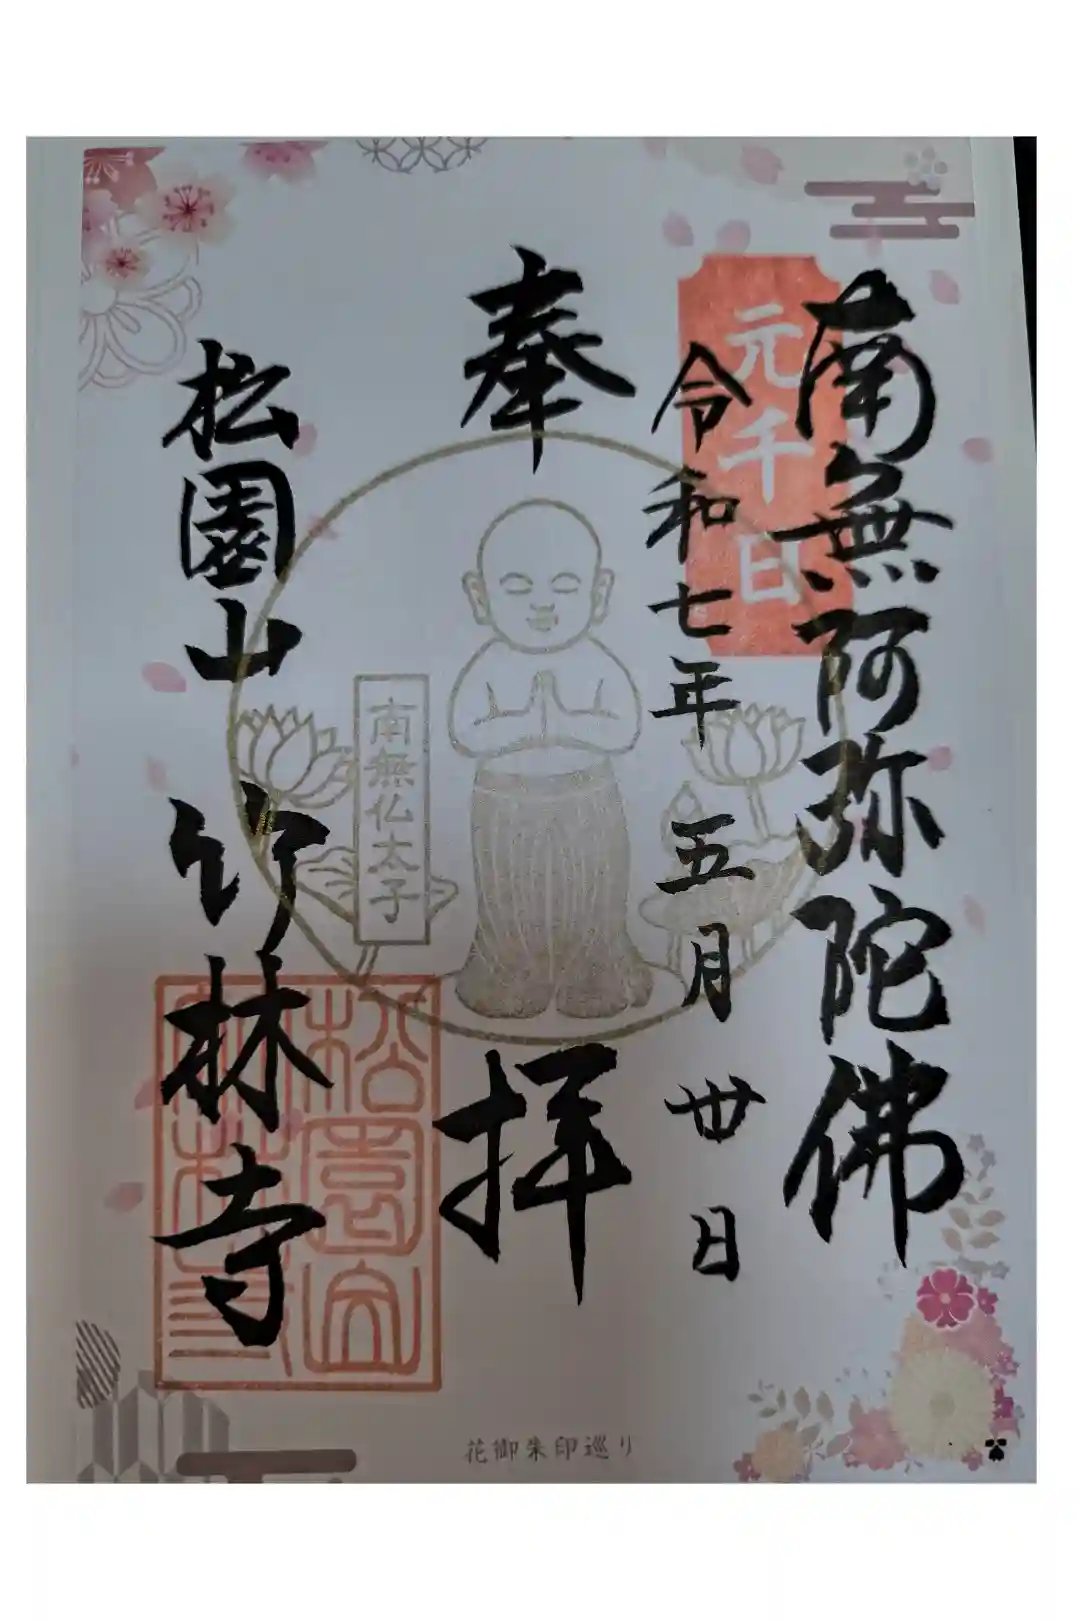 南無阿弥陀佛
元千日
令和七年 五月 丗日
奉拝
南無仏太子
松園山 竹林寺
松園山
竹林寺
花御朱印巡り